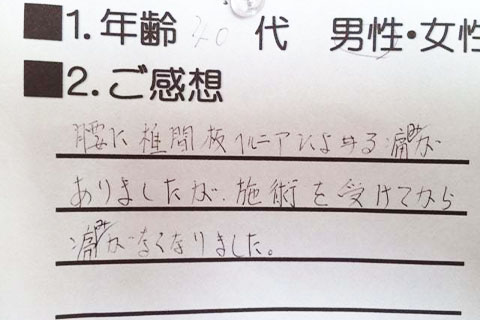 ■1.年齢 30 代 男性・女性
■2.ご感想
腰に椎間板ヘルニアによる痛みが
ありましたが、施術を受けてから
痛みがなくなりました。